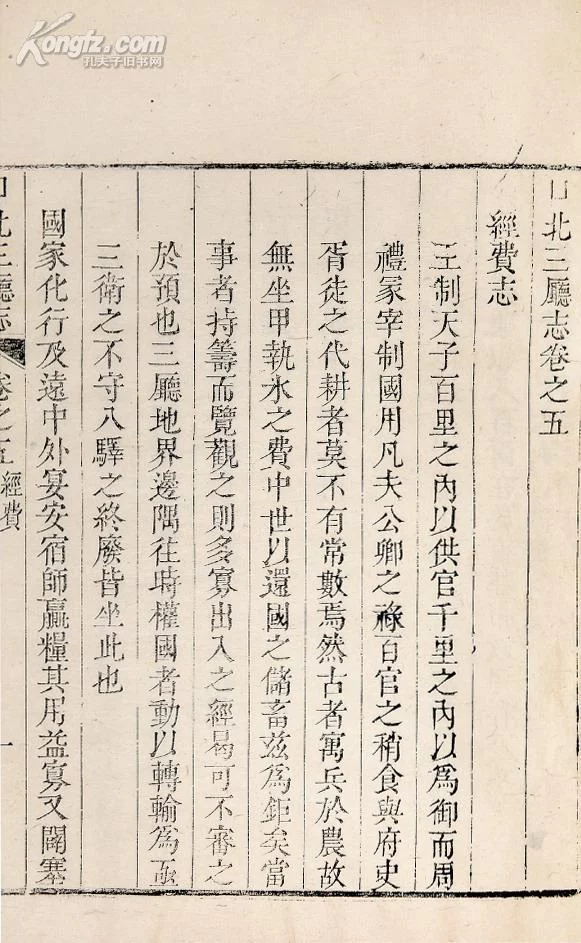 Kongfz.com
孔夫子旧书网
口北三廳志卷之五
經費志
王制天子百里之內以供官千里之內以為御而周
禮冢宰制國用凡夫公卿之祿百官之稍食與府史
胥徒之代耕者莫不有常數焉然古者寓兵於農故
無坐甲執氷之費中世以還國之儲畜兹為鉅矣當
事者持籌而覽觀之則多寡出入之經曷可不審之
於預也三廳地界邊隅往時權國者動以轉輸為亟
三衛之不守八驛之終廢皆坐此也
國家化行及遠中外宴安宿師贏糧其用益寡又闢塞
口北三廳志
卷之五
經費
一